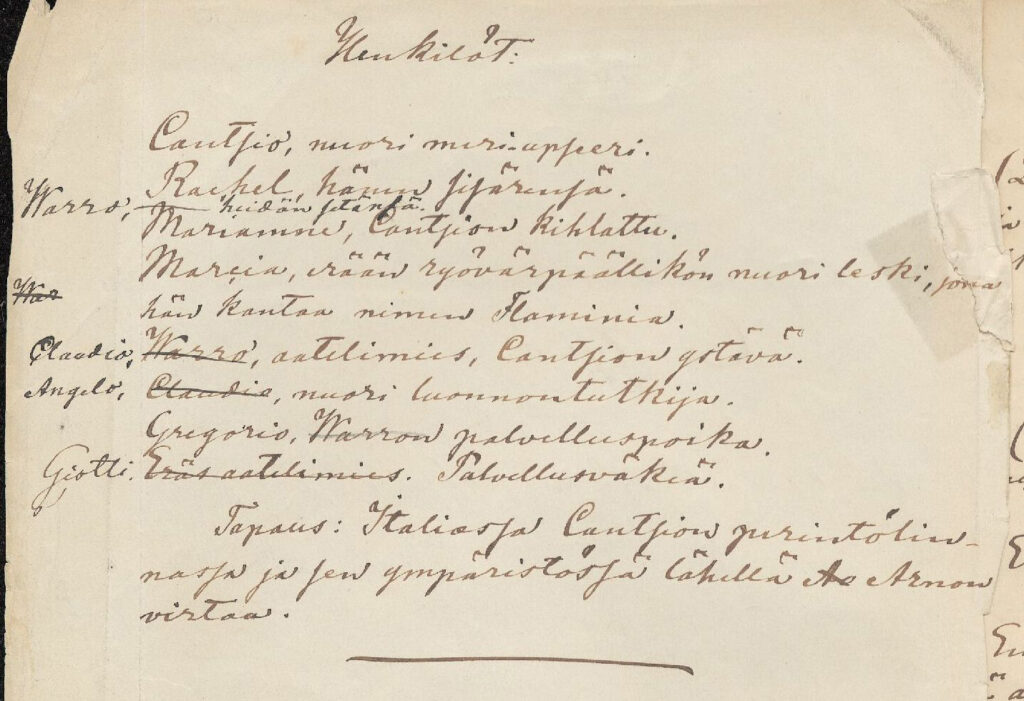 Henkilöt:
Cantsio, nuori meri-upseeri.
Rachel, hänen sisärensä.
Warro, heidän setänsä.
Mariamne, Cantsion kihlattu.
Marcia, erään ryövärpäällikön nuori leski, jona
War
hän kantaa nimen Flaminia.
Claudio, Warro, aatelimies, Cantsion ystävä.
Angelo, Claudio, nuori luonnontutkija.
Gregorio, Warron palvelluspoika.
Giotti. Eräs aatelimies. Palvellusväkeä.
Tapaus: Italiassa Cantsion perintölin-
nassa ja sen ympäristössä lähellä Ae Arnon
virtaa.